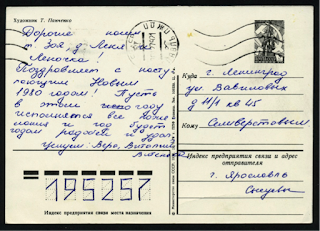 Художник Т. Панченко
Дорогие наши
т. Зоя, д. Леня и
Леночка!
Поздравляем с насту-
пающим Новым
1980 годом! Пусть
в этом году
исполнятся все поже-
лания и год будет
годом радости и удач.
Целуем: Вера, Виталий
Куда г. Ленинград
ул Вавиловых
д 11/1 кв 45
Кому Селиверстовым
Индекс предприятия связи и адрес
отправителя
г. Ярославль
195257
Индекс предприятия связи места назначения